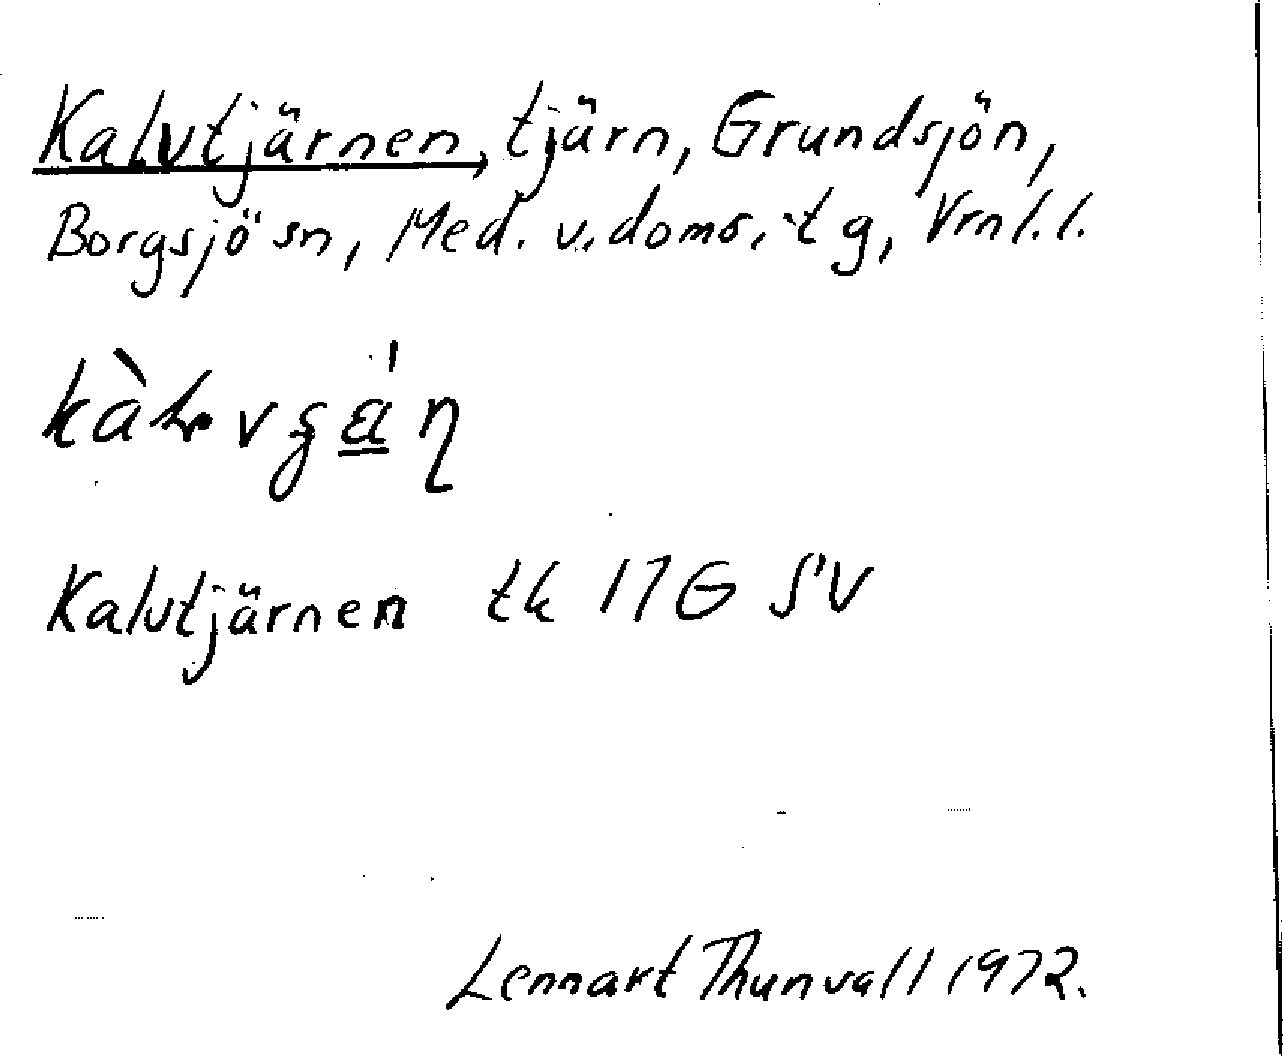 Kalvtjärnen, tjärn, Grundsjön,
Borgsjö sn, Med. v. doms.-tg, Vrnl.l.
Kalvtjärnen tk 17G SV
Lennart Thunvall 1972.